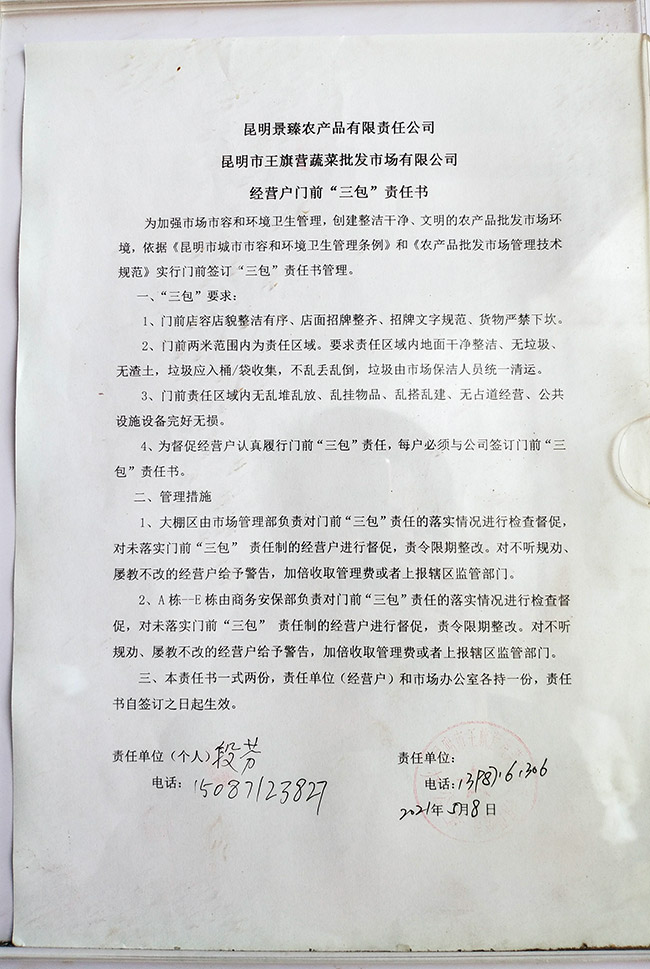 昆明景臻农产品有限责任公司
昆明市王旗营蔬菜批发市场有限公司
经营户门前“三包”责任书
为加强市场市容和环境卫生管理，创建整洁干净、文明的农产品批发市场环
境，依据《昆明市城市市容和环境卫生管理条例》和《农产品批发市场管理技术
规范》实行门前签订“三包”责任书管理。
一、“三包”要求：
1、门前店容店貌整洁有序、店面招牌整齐、招牌文字规范、货物严禁下坎。
2、门前两米范围内为责任区域。要求责任区域内地面干净整洁、无垃圾、
无渣土，垃圾应入桶/袋收集，不乱丢乱倒，垃圾由市场保洁人员统一清运。
3、门前责任区域内无乱堆乱放、乱挂物品、乱搭乱建、无占道经营、公共
设施设备完好无损。
4、为督促经营户认真履行门前“三包”责任，每户必须与公司签订门前“三
包”责任书。
二、管理措施
1、大棚区由市场管理部负责对门前“三包”责任的落实情况进行检查督促，
对未落实门前“三包” 责任制的经营户进行督促，责令限期整改。对不听规劝、
屡教不改的经营户给予警告，加倍收取管理费或者上报辖区监管部门。
2、A 栋--E 栋由商务安保部负责对门前“三包”责任的落实情况进行检查督
促，对未落实门前“三包” 责任制的经营户进行督促，责令限期整改。对不听
规劝、屡教不改的经营户给予警告，加倍收取管理费或者上报辖区监管部门。
三、本责任书一式两份，责任单位（经营户）和市场办公室各持一份，责任
书自签订之日起生效。
责任单位（个人）段芳
责任单位：
电话：15087123827
电话：
2021年5月8日